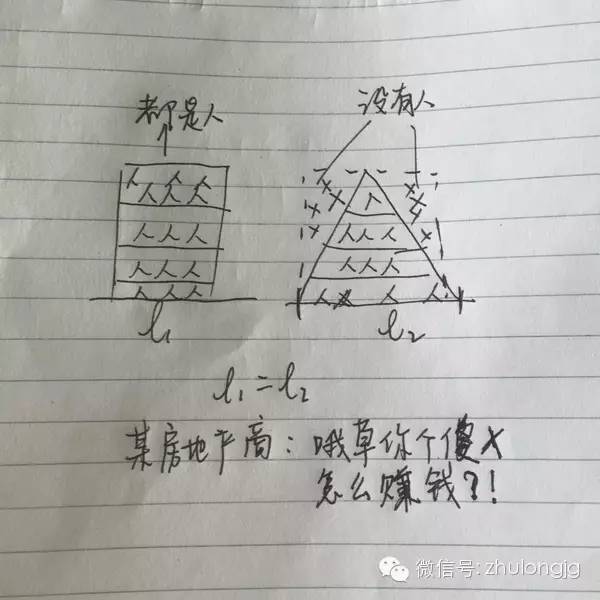 都是人
没有人
l₁
l₂
l₁=l₂
某房地产商：哦草你个傻X
怎么赚钱?!
微信号: zhulongjg